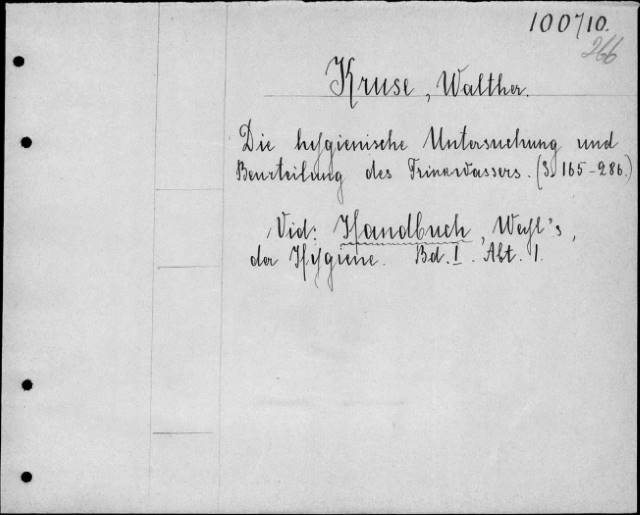 100710.
266
Kruse, Walther.
Die hygienische Untersuchung und
Beurteilung des Trinkwassers. (S. 165-286.)
Vid: Handbuch, Weyl's,
der Hygiene. Bd. I. Abt. 1.